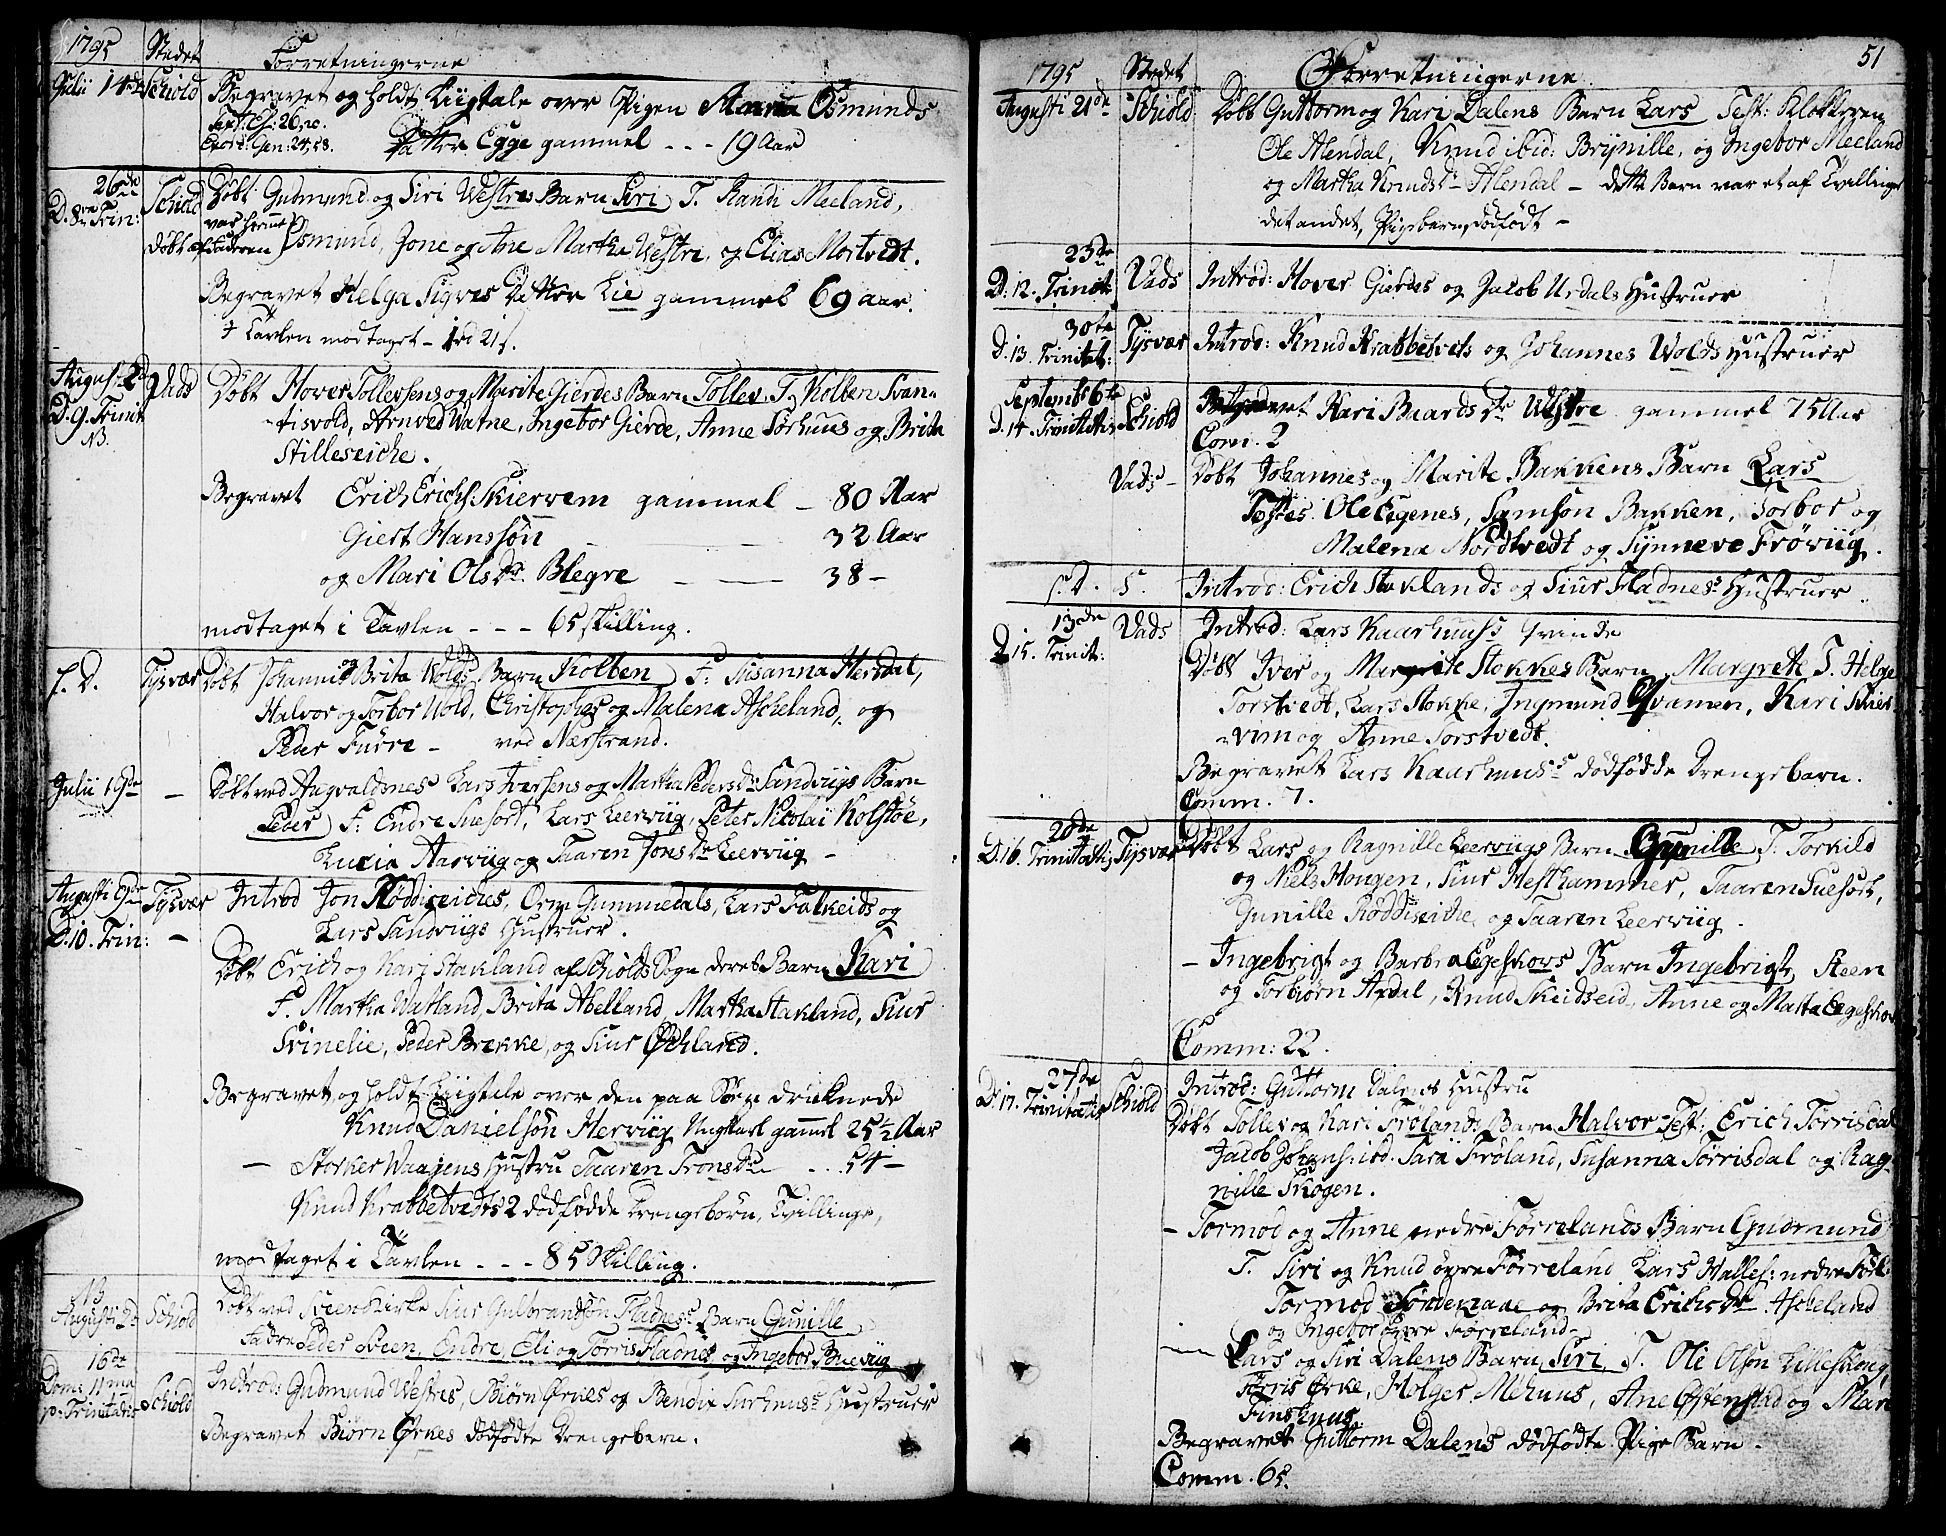 1795 Stedet Forretningerne
Julii 14de Schiold Begravet og holdt Liigtale over Pigen Osmunds
Text: Es: 26, 20.
Exord: Gen: 24, 58. Datter Egge gammel - - - 19 Aar
26de
D. 8de Trin: Schiold Døbt Gudmund og Siri Westres Barn Siri T. Randi Meeland,
var hiemme
døbt af Faderen Osmund, Jone og Ane Martha Westre, og Elias Mortvedt.
Begravet Helga Sigves Datter Lie gammel 69 aar.
I Tavlen modtaget - 1rd 21 s.
August 2d Vads Døbt Hover Tollevsens og Marite Gierdes Barn Tollev. T. Kolben Svan-
D. 9. Trinit -tisvold, Arnved Watne, Ingebor Gierde, Anne Sørhuus og Brita
NB. Stilleseiche.
Begravet Erich Erichs: Skiervem gammel - 80 Aar
Giert Hanssøn - - 32 Aar
og Mari Olsdr. Blegre - - 38 -
modtaget i Tavlen - - - 65 skilling.
s. D. Tysvær Døbt Johannis og Brita Wolds Barn Kolben F: Susanna Hersdal,
Halvor og Torbor Wold, Christopher og Malena Ascheland, og
Peder Furre - ved Nærstrand.
Julii 19de - Døbt ved Augvaldsnes Lars Iversens og Martha Pedersdr Sandviigs Barn
Peder F: Endre Suefort, Lars Leerviig, Peter Nicolai Kolstøe,
Lucia Aarviig og Taaren Jonsdr Leerviig -
Augusti 9de Tysvær Introd Jon Røddiseiches, Orm Gummedals, Lars Falkeids og
D. 10. Trin: - Lars Sandviigs Hustruer.
Døbt Erich og Kari Stakland af Schiolds Sogn deres Barn Kari
F. Martha Watland, Brita Abelland, Martha Stakland, Siur
Svinelie, Peder Brekke, og Siur Øchland.
Begravet og holdt Liigtale over den paa Søen druknede
Knud Danielsøn Herviig Ungkarl gammel 25½ Aar
- Storker Waagens Hustru Taaren Tronsdr - - 54 -
Knud Krabbetvedts 2 dødfødde Drengebørn, Tvillinge,
modtaget i Tavlen - - - 85 Skilling.
NB
Augusti 2d Schiold Døbt ved Sveens Kirke Siur Gulbrandsøn Fladnes Barn Gunille
Faddre Peder Sveen, Endre, Eli og Torris Fladnes og Ingebor Bueviig
16de
Dom: 11ma
p. Trinitatis Schiold Introd: Gudmund Westres, Biørn Ørkes og Bendix Surhuus Hustruer
Begravet Biørn Ørkes dødfødte Drengebarn.
51
1795 Stedet Forretningerne
Augusti 21de Schiold Døbt Guttorm og Kari Dalens Barn Lars Test: Klokkeren
Ole Alendal, Knud ibid: Brynille, og Ingebor Meeland
og Martha Knudsdr Alendal - dette Barn var et af Tvillinge
det andet, Pigebarn, dødfødt -
23de
D: 12. Trinit: Vads Introd: Hover Gierdes og Jacob Urdals Hustruer
30te
D. 13. Trinitat: Tysvær Introd: Knud Krabbetvets og Johannes Wolds Hustruer
Septembr 6te
D. 14. Trinitatis Schiold Begravet Kari Baardsdr Westre gammel 75 Aar
Com. 2
Vads - Døbt Johannes og Marite Bakkens Barn Lars
Testes. Ole Egenes, Samson Bakken, Torbor og
Malena Nordtvedt og Synneve Frøviig.
s. D. S. Introd: Erich Staklands og Siur Fladnes Hustruer.
13de
D 15. Trinit: Vads Introd: Lars Kaarhuus Qvinde
Døbt Iver og Margrite Stokkes Barn Margrete T. Helge
Torstvedt, Lars Stokke, Ingmund Qvamen, Kari Skier-
-vem og Anne Torstvedt.
Begravet Lars Kaarhuus dødfødde Drengebarn.
Comm. 7.
20de
D. 16. Trinitatis Tysvær Døbt Lars og Ragnille Leerviigs Barn Gunille T. Torkild
og Niels Hougen, Siur Hesthammer, Taaren Suefort,
Gunille Røddiseiche og Taaren Leerviig.
- Ingebrigt og Barbra Egeskovs Barn Ingebrigt, Steen
og Torbiørn Apdal, Knud Skeidseid, Anne og Marta Egeskov
Comm: 22.
27de
D. 17. Trinitatis Schiold Introd: Guttorm Dalens Hustru
Døbt Tollev og Kari Frølands Barn Halvor Test: Erich Tørrisdal
Jacob Johans: ibd. Sara Frøland, Susanna Tørrisdal og Rag-
nille Skogen.
- Tormod og Anne nedre Førrelands Barn Gudmund
T. Siri og Knud øvre Førreland Lars Halles: nedre Førl:
Tormod Søndenaae og Brita Erichsdr Ascheland
og Ingebor øvre Førreland -
- Lars og Siri Dalens Barn Siri T. Ole Olsøn Lilleskog,
Torris Ørke, Holger Mehuus, Ane Østenstad og Mari
Finshuus.
Begravet Guttorm Dalens dødfødte Pige Barn -
Comm. 65.